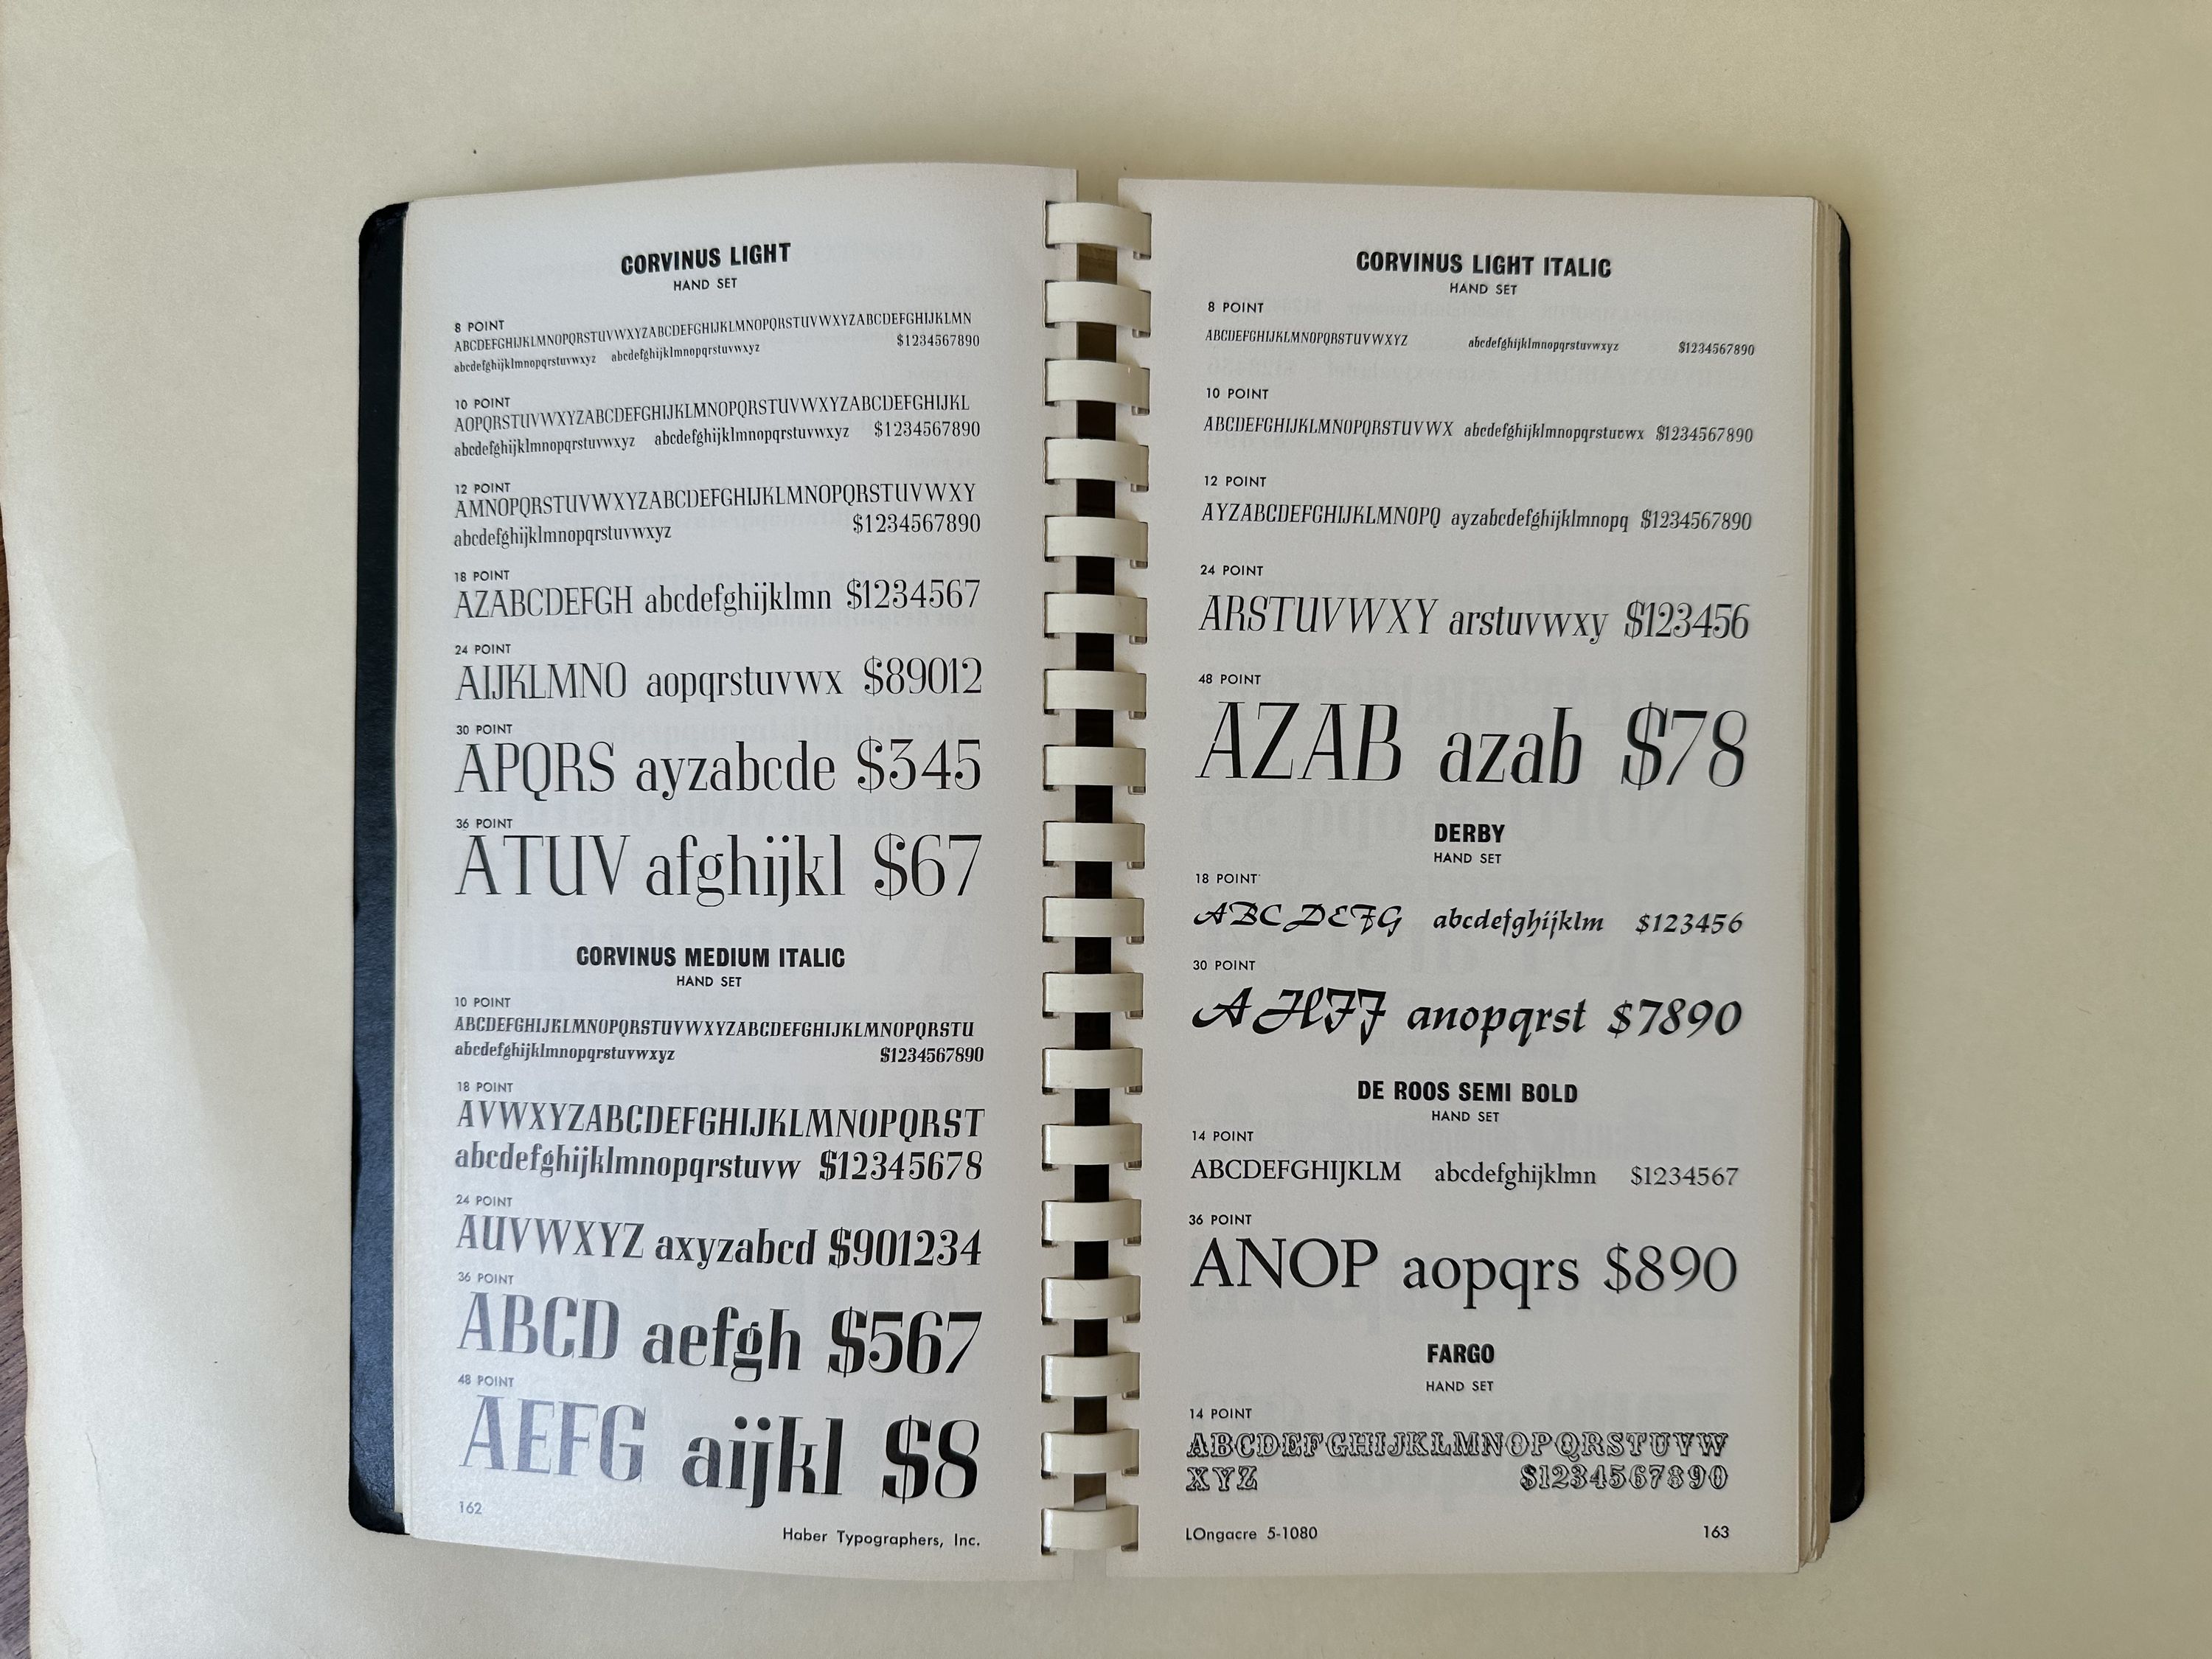 CORVINUS LIGHT
HAND SET
8 POINT
ABCDEFGHIJKLMNOPQRSTUVWXYZABCDEFGHIJKLMNOPQRSTUVWXYZABCDEFGHIJKLMN
abcdefghijklmnopqrstuvwxyz abcdefghijklmnopqrstuvwxyz $1234567890
10 POINT
AOPQRSTUVWXYZABCDEFGHIJKLMNOPQRSTUVWXYZABCDEFGHIJKL
abcdefghijklmnopqrstuvwxyz abcdefghijklmnopqrstuvwxyz $1234567890
12 POINT
AMNOPQRSTUVWXYZABCDEFGHIJKLMNOPQRSTUVWXY
abcdefghijklmnopqrstuvwxyz $1234567890
18 POINT
AZABCDEFGH abcdefghijklmn $1234567
24 POINT
AIJKLMNO aopqrstuvwx $89012
30 POINT
APQRS ayzabcde $345
36 POINT
ATUV afghijkl $67
CORVINUS MEDIUM ITALIC
HAND SET
10 POINT
ABCDEFGHIJKLMNOPQRSTUVWXYZABCDEFGHIJKLMNOPQRSTU
abcdefghijklmnopqrstuvwxyz $1234567890
18 POINT
AVWXYZABCDEFGHIJKLMNOPQRST
abcdefghijklmnopqrstuvw $12345678
24 POINT
AUVWXYZ axyzabcd $901234
36 POINT
ABCD aefgh $567
48 POINT
AEFG aijkl $8
162
Haber Typographers, Inc.
CORVINUS LIGHT ITALIC
HAND SET
8 POINT
ABCDEFGHIJKLMNOPQRSTUVWXYZ abcdefghijklmnopqrstuvwxyz $1234567890
10 POINT
ABCDEFGHIJKLMNOPQRSTUVWX abcdefghijklmnopqrstuvwx $1234567890
12 POINT
AYZABCDEFGHIJKLMNOPQ ayzabcdefghijklmnopq $1234567890
24 POINT
ARSTUVWXY arstuvwxy $123456
48 POINT
AZAB azab $78
DERBY
HAND SET
18 POINT
ABCDEFG abcdefghijklm $123456
30 POINT
AHIJ anopqrst $7890
DE ROOS SEMI BOLD
HAND SET
14 POINT
ABCDEFGHIJKLM abcdefghijklmn $1234567
36 POINT
ANOP aopqrs $890
FARGO
HAND SET
14 POINT
ABCDEFGHIJKLMNOPQRSTUVW
XYZ $1234567890
LOngacre 5-1080
163